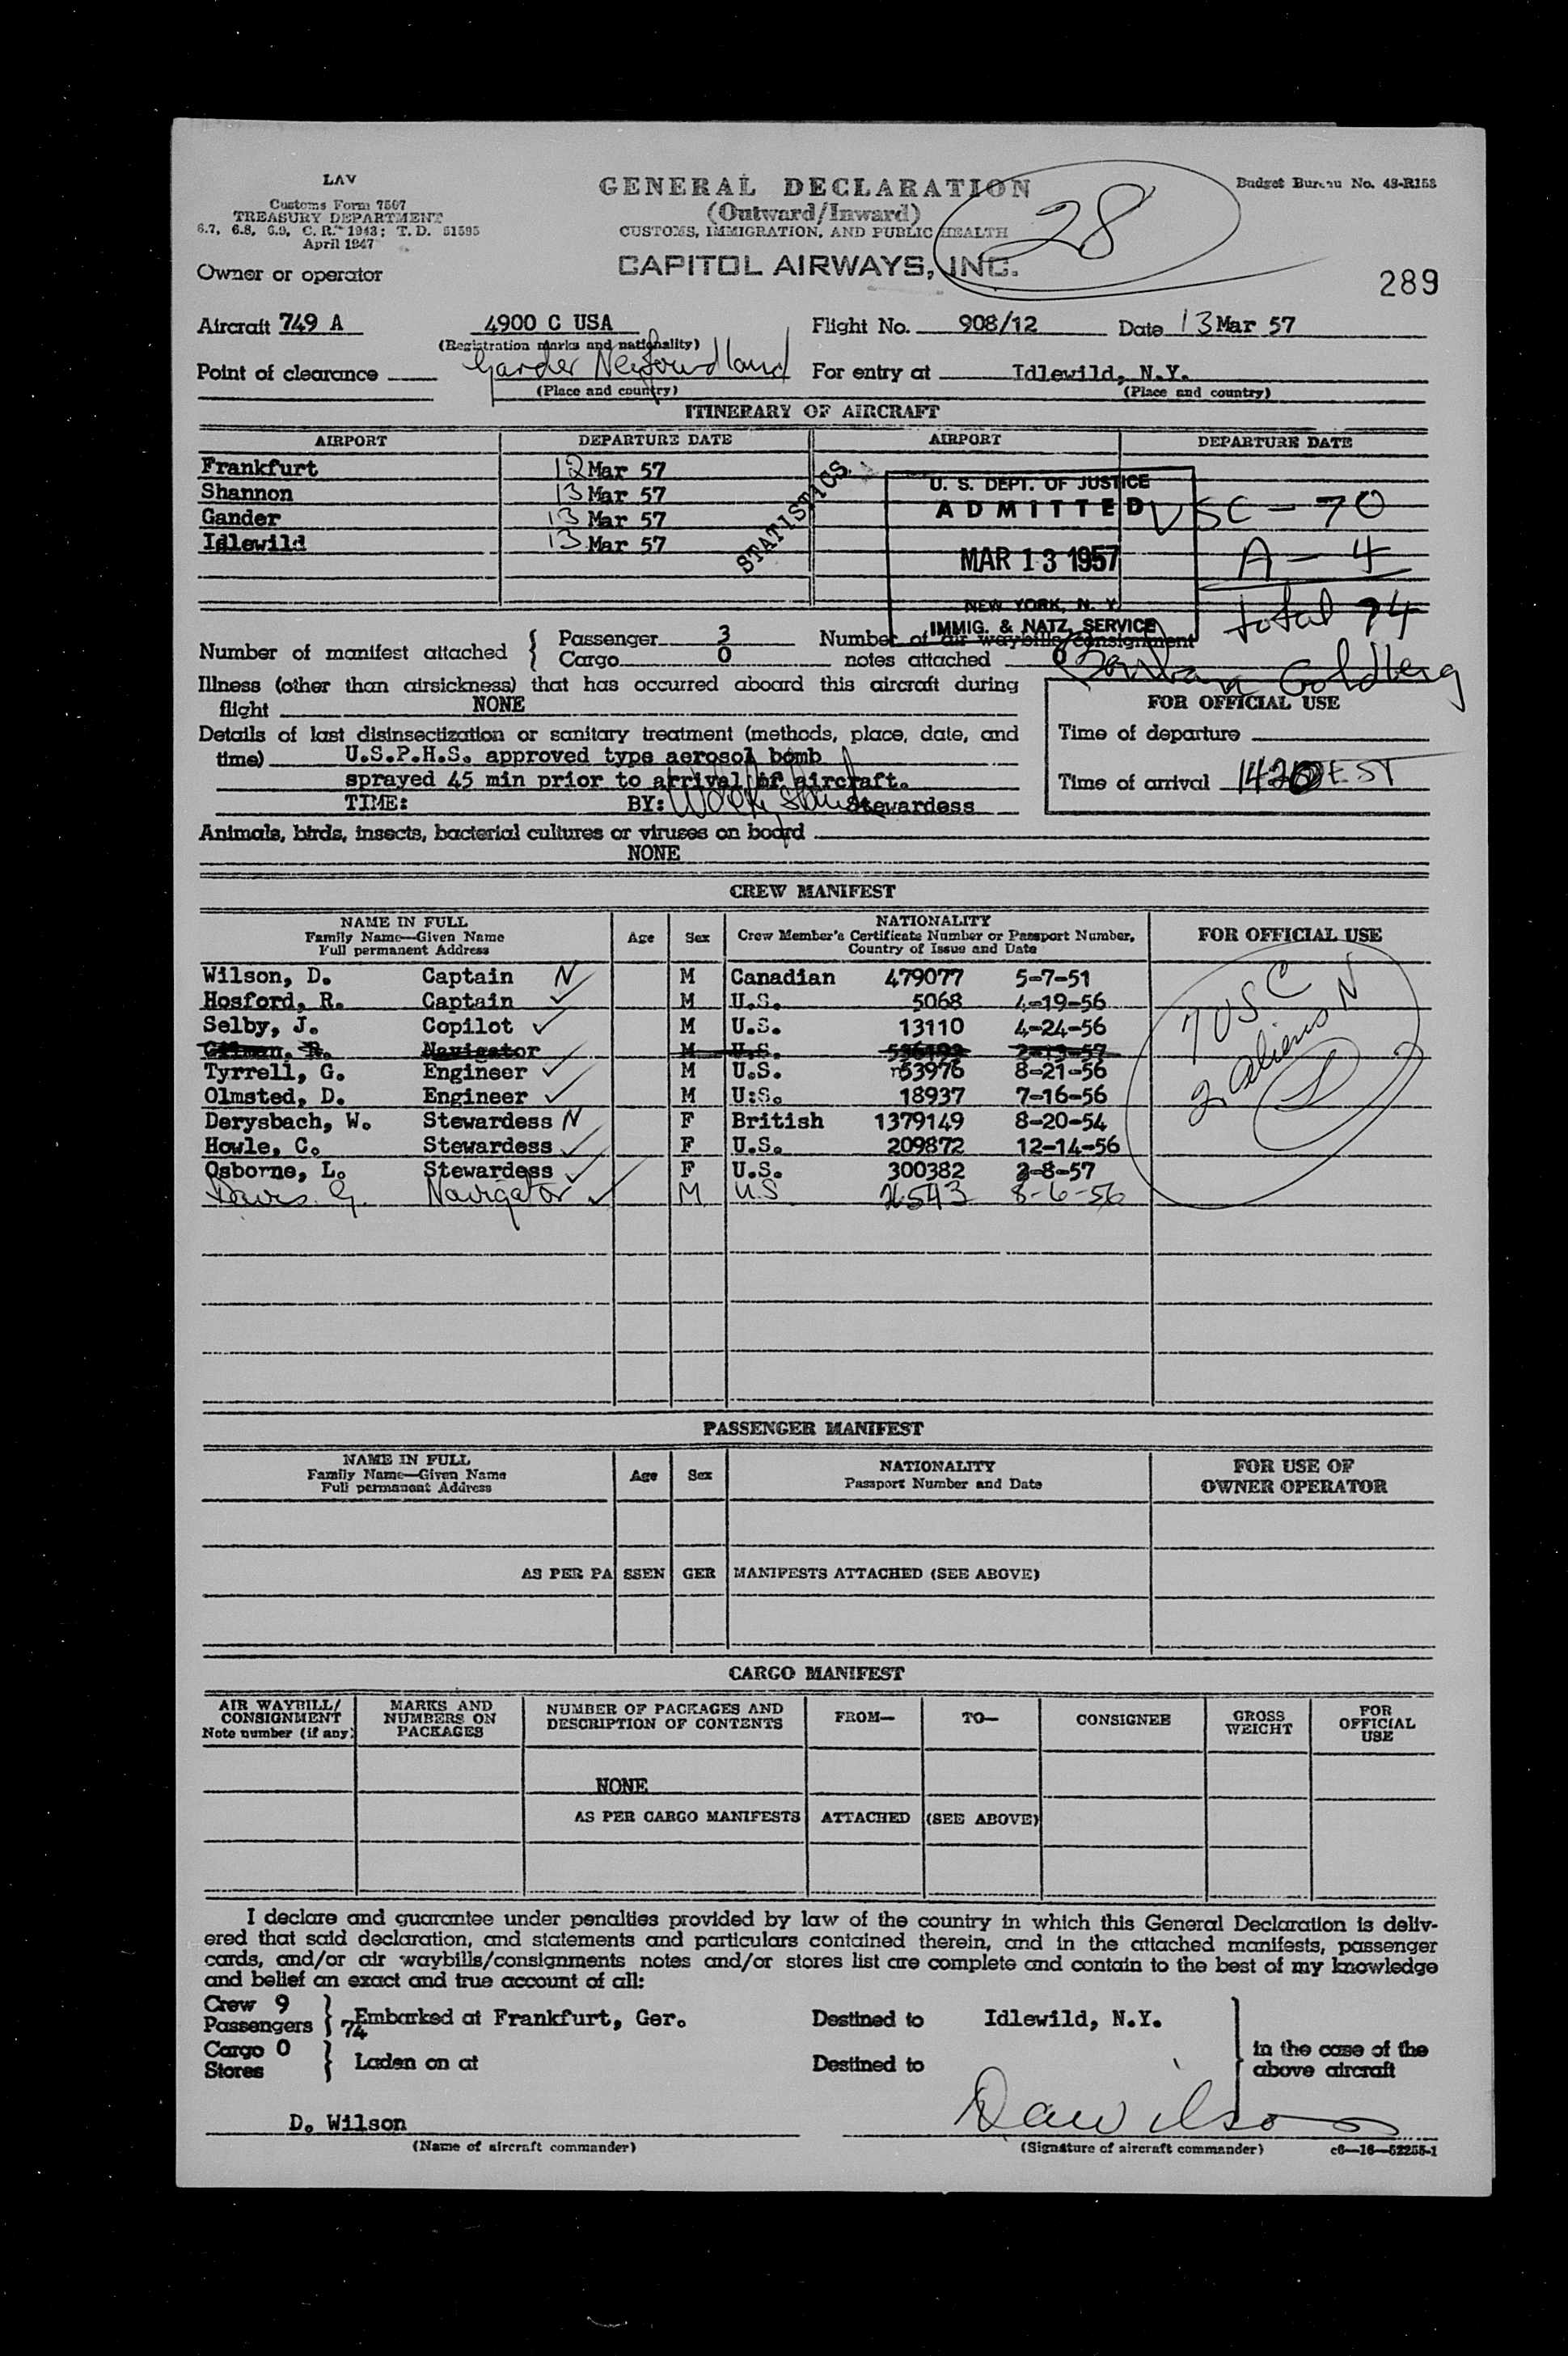 LAV
Customs Form 7507
TREASURY DEPARTMENT
6.7, 6.8, 6.9, C. R. 1943; T. D. 51595
April 1947
GENERAL DECLARATION
(Outward/Inward)
CUSTOMS, IMMIGRATION, AND PUBLIC HEALTH
CAPITOL AIRWAYS, INC.
28
Budget Bureau No. 48-R158
289
Owner or operator
Aircraft 749 A 4900 C USA Flight No. 908/12 Date 13 Mar 57
(Registration marks and nationality)
Point of clearance Gander Newfoundland For entry at Idlewild, N.Y.
(Place and country) (Place and country)
ITINERARY OF AIRCRAFT
AIRPORT DEPARTURE DATE AIRPORT DEPARTURE DATE
Frankfurt 12 Mar 57
Shannon 13 Mar 57
Gander 13 Mar 57
Idlewild 13 Mar 57
STATISTICS
U. S. DEPT. OF JUSTICE
ADMITTED
MAR 13 1957
NEW YORK, N. Y.
IMMIG. & NATZ. SERVICE
USC - 70
A - 4
total 74
Goldberg
Number of manifest attached { Passenger 3 Number of air waybills/consignment
Cargo 0 notes attached 0
Illness (other than airsickness) that has occurred aboard this aircraft during
flight NONE
Details of last disinsectization or sanitary treatment (methods, place, date, and
time) U.S.P.H.S. approved type aerosol bomb
sprayed 45 min prior to arrival of aircraft.
TIME: BY: Stewardess
FOR OFFICIAL USE
Time of departure
Time of arrival 1420 EST
Animals, birds, insects, bacterial cultures or viruses on board
NONE
CREW MANIFEST
NAME IN FULL
Family Name—Given Name
Full permanent Address
Age Sex
NATIONALITY
Crew Member's Certificate Number or Passport Number,
Country of Issue and Date
FOR OFFICIAL USE
Wilson, D. Captain N M Canadian 479077 5-7-51
Hosford, R. Captain ✓ M U.S. 5068 4-19-56
Selby, J. Copilot ✓ M U.S. 13110 4-24-56
R. Navigator M U.S.
Tyrrell, G. Engineer ✓ M U.S. 53976 8-21-56
Olmsted, D. Engineer ✓ M U:S. 18937 7-16-56
Derysbach, W. Stewardess N F British 1379149 8-20-54
Howle, C. Stewardess ✓ F U.S. 209872 12-14-56
Osborne, L. Stewardess ✓ F U.S. 300382 2-8-57
Davis. G. Navigator ✓ M US 8-6-56
7 USC
2 aliens N
PASSENGER MANIFEST
NAME IN FULL
Family Name—Given Name
Full permanent Address
Age Sex
NATIONALITY
Passport Number and Date
FOR USE OF
OWNER OPERATOR
AS PER PASSENGER MANIFESTS ATTACHED (SEE ABOVE)
CARGO MANIFEST
AIR WAYBILL/
CONSIGNMENT
Note number (if any)
MARKS AND
NUMBERS ON
PACKAGES
NUMBER OF PACKAGES AND
DESCRIPTION OF CONTENTS
FROM— TO— CONSIGNEE
GROSS
WEIGHT
FOR
OFFICIAL
USE
NONE
AS PER CARGO MANIFESTS ATTACHED (SEE ABOVE)
I declare and guarantee under penalties provided by law of the country in which this General Declaration is deliv-
ered that said declaration, and statements and particulars contained therein, and in the attached manifests, passenger
cards, and/or air waybills/consignments notes and/or stores list are complete and contain to the best of my knowledge
and belief an exact and true account of all:
Crew 9
Passengers 74 } Embarked at Frankfurt, Ger. Destined to Idlewild, N.Y.
Cargo 0
Stores } Laden on at Destined to
in the case of the
above aircraft
D. Wilson DaWilson
(Name of aircraft commander) (Signature of aircraft commander) c6—16—52255-1